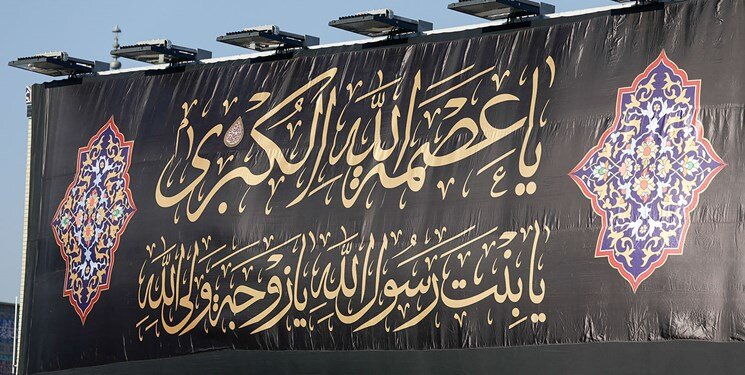 يا عِصْمَةَ اللهِ الكُبْرى
يا بِنْتَ رَسُولِ اللهِ يا زَوْجَةَ وَلِيِّ اللهِ